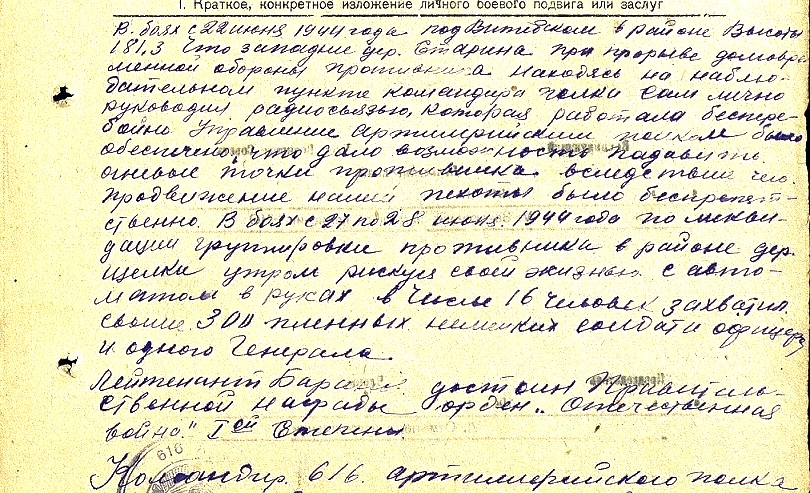 1. Краткое, конкретное изложение личного боевого подвига или заслуг
В боях с 22 июня 1944 года под Витебском в районе Высоты
181,3 что западнее дер. Старина при прорыве долговре
менной обороны противника находясь на наблю-
дательном пункте командира полка сам лично
руководил радиосвязью, которая работала беспере-
бойно Управление артилерийским полком было
обеспечено, что дало возможность подавить
огневые точки противника вследствии чего
продвижение нашей пехоты было беспрепят-
ственно. В боях с 27 по 28 июня 1944 года по ликви-
дации группировки противника в районе дер.
щелки утром рискуя своей жизнью с авто-
матом в руках в числе 16 человек захватил
свыше 300 пленных немецких солдат и офицеров
и одного Генерала
Лейтенант достоин Правитель-
ственной награды орден „Отечественная
война" Iой Степени.
Командир 616 артилерийского полка